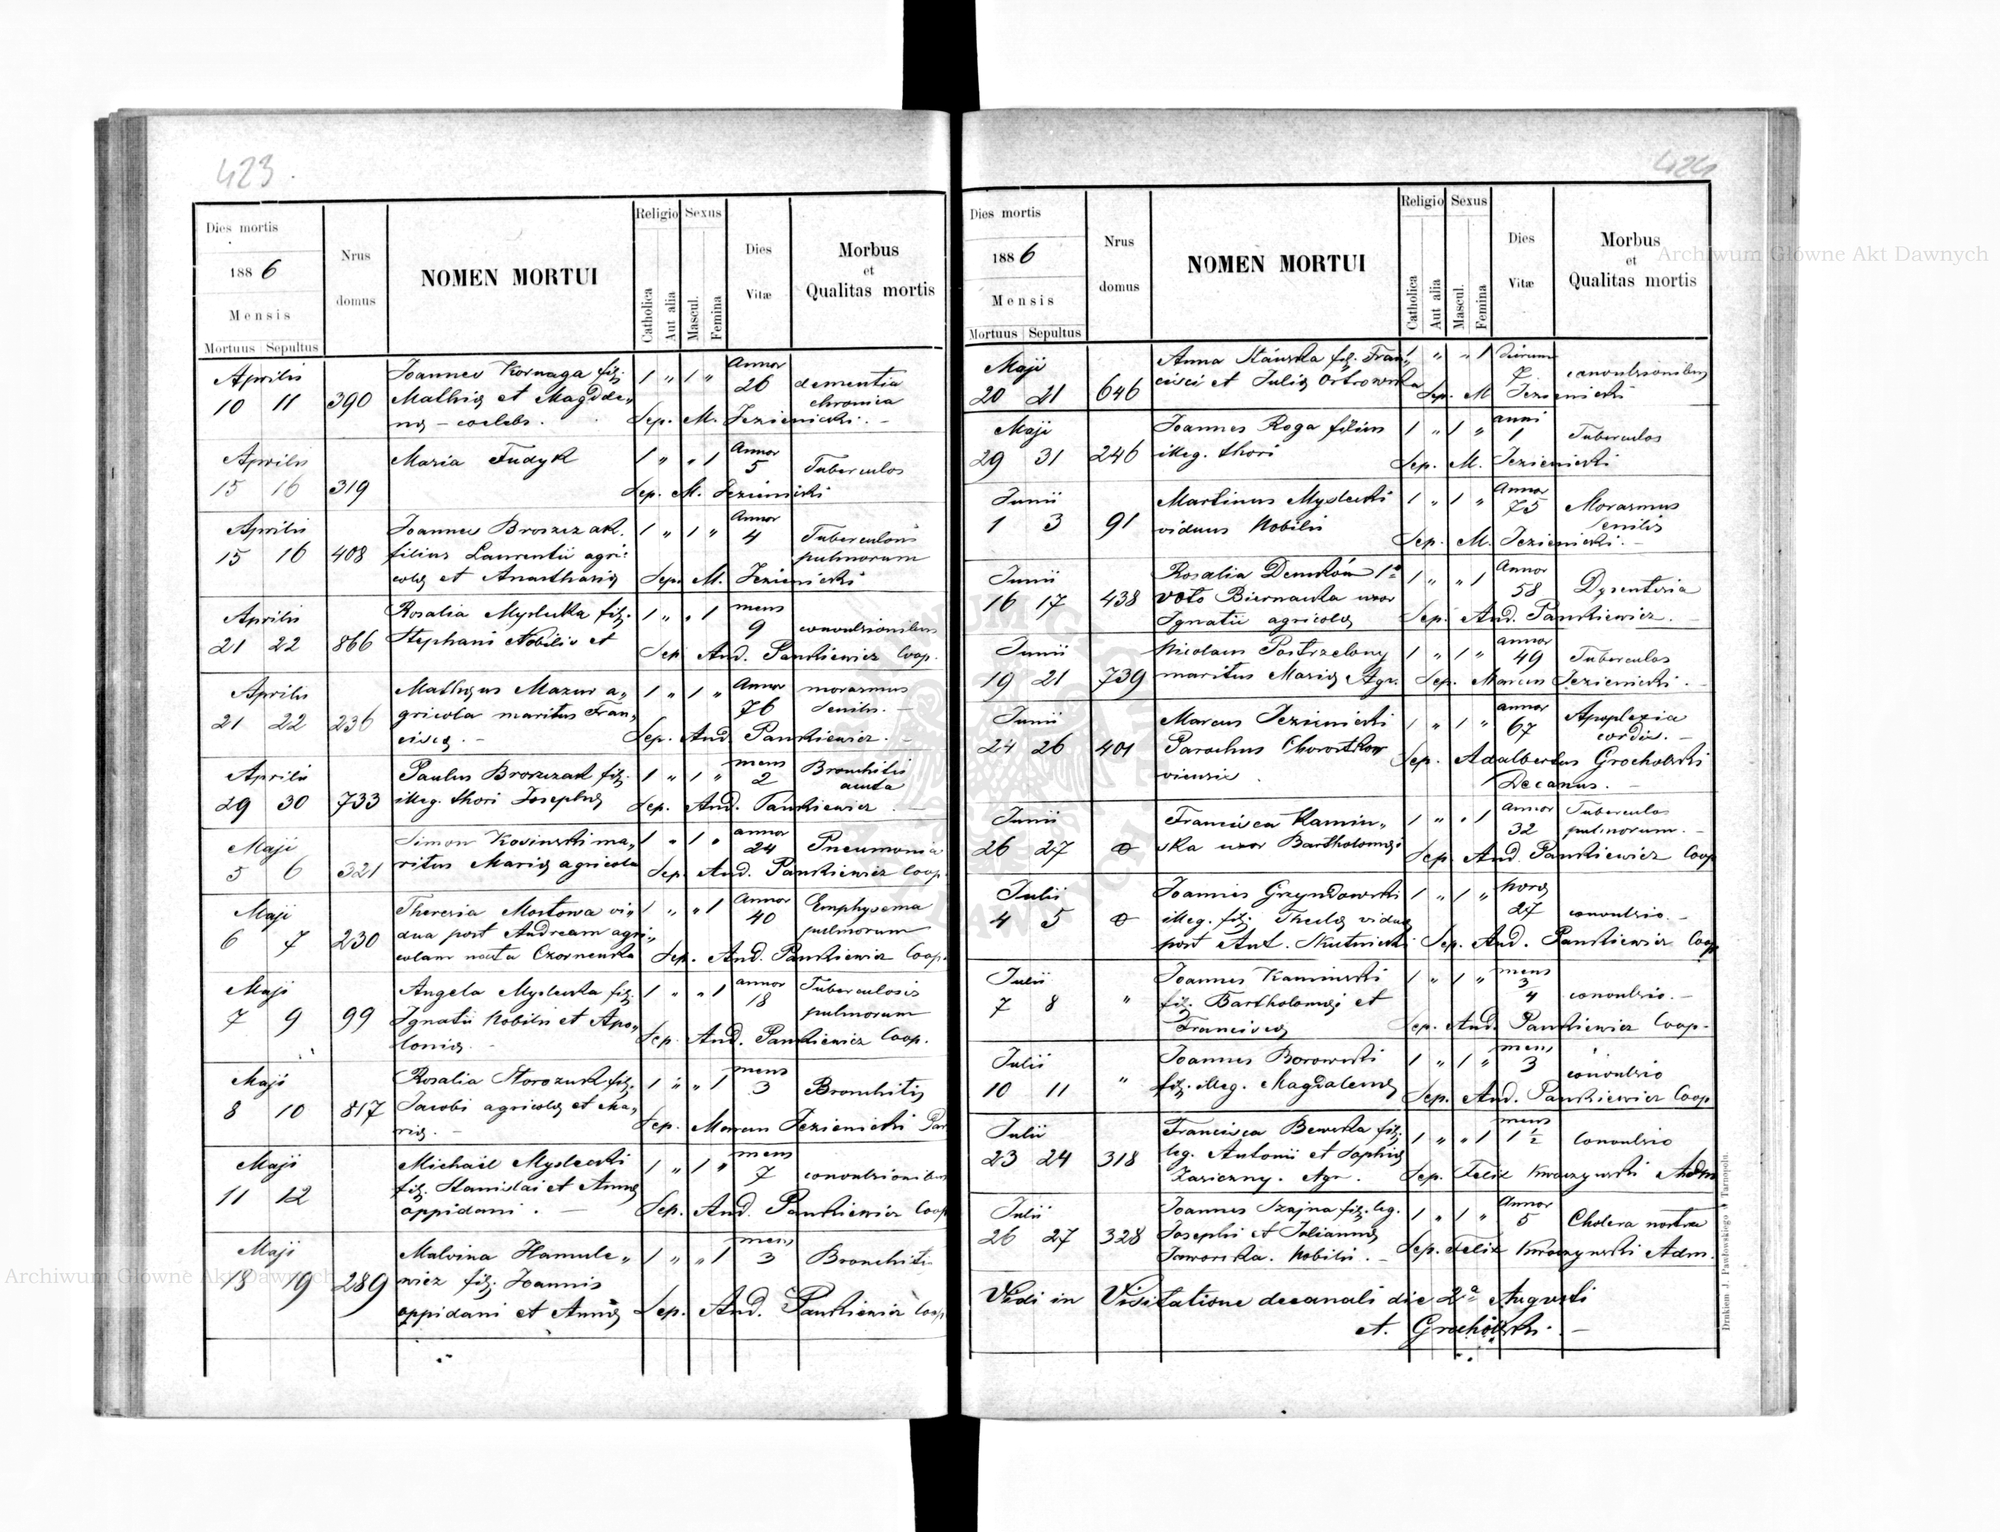 423.
Dies mortis
1886
Mensis
Mortuus Sepultus
Nrus
domus
NOMEN MORTUI
Religio
Catholica
Aut alia
Sexus
Mascul.
Femina
Dies
Vitæ
Morbus
et
Qualitas mortis
Aprilis Joannes Kornaga filj. 1 " 1 " Annor
10 11 390 Mathiæ et Magdale„ 26 dementia
næ – coelebs. Sep. M. Jezienicki. – chronica
Aprilis Maria Fudyk 1 " " 1 Annor
15 16 319 5 Tuberculos
Sep. M. Jezienicki
Aprilis Joannes Broszczak. 1 " 1 " Annor
15 16 408 filius Laurentii agri: 4 Tuberculosis
colæ et Anasthasiæ Sep. M. Jezienicki pulmorum
Aprilis Rosalia Myslecka filj. 1 " " 1 mens
21 22 866 Stephani Nobilis et 9 convulsionibus
Sep. And. Pankiewicz Coop.
Aprilis Matheus Mazur a„ 1 " 1 " Annor morasmus
21 22 236 gricola maritus Fran„ 76 senilis. –
ciscæ. – Sep. And. Pankiewicz. –
Aprilis Paulus Broszczak filj. 1 " 1 " mens Bronchitis
29 30 733 illeg. thori Josephæ 2 acuta
Sep. And. Pankiewicz
Maji Simon Kosinski ma„ 1 " 1 " annor
5 6 321 ritus Mariæ agricola 24 Pneumonia
Sep. And. Pankiewicz Coop.
Maji Theresia Mostowa vi„ 1 " " 1 Annor Emphysema
6 7 230 dua post Andream agri„ 40 pulmorum
colam nata Czornenka Sep. And. Pankiewicz Coop.
Maji Angela Myslecka filj. 1 " " 1 annor Tuberculosis
7 9 99 Ignatii Nobilis et Apo„ 18 pulmorum
loniæ. – Sep. And. Pankiewicz Coop.
Maji Rosalia Storozuk filj. 1 " " 1 mens
8 10 817 Jacobi agricolæ et Ma„ 3 Bronchitis
riæ. – Sep. Marcus Jezienicki Par
Maji Michael Myslecki 1 " 1 " mens
11 12 filj. Stanislai et Annæ 7 convulsionibus
oppidani. – Sep. And. Pankiewicz Coop
Maji Malvina Hamule„ 1 " " 1 mens
18 19 289 wicz filj. Joannis 3 Bronchitis
oppidani et Annæ Sep. And. Pankiewicz Coop.
424
Dies mortis
1886
Mensis
Mortuus Sepultus
Nrus
domus
NOMEN MORTUI
Religio
Catholica
Aut alia
Sexus
Mascul.
Femina
Dies
Vitæ
Morbus
et
Qualitas mortis
Maji Anna filj. Fran„ 1 " " 1 dierum
20 21 646 cisci et Juliæ Ostrowska 7 convulsionibus
Sep. M. Jezienicki
Maji Joannes Roga filius 1 " 1 " anni
29 31 246 illeg. thori 1 Tuberculos
Sep. M. Jezienicki
Junii Martinus Myslecki 1 " 1 " Annor
1 3 91 viduus Nobilis 75 Morasmus
Sep. M. Jezienicki. – senilis
Junii Rosalia 1º 1 " " 1 Annor
16 17 438 voto Biernacka uxor 58 Dysenteria
Ignatii agricolæ Sep. And. Pankiewicz.
Junii Nicolaus Postrzelony 1 " 1 " annor
19 21 739 maritus Mariæ Agr. 49 Tuberculos
Sep. Marcus Jezienicki. –
Junii Marcus Jezienicki 1 " 1 " annor Apoplexia
24 26 401 Parochus Chorostkow 67 cordis. –
viensis. Sep. Adalbertus Grocholski
Decanus. –
Junii Francisca Kamin„ 1 " " 1 annor Tuberculos
26 27 ⊕ ska uxor Bartholomæi 32 pulmorum. –
Sep. And. Pankiewicz Coop
Julii Joannes Grzyndowski 1 " 1 " horæ
4 5 ⊕ illeg. filj. Theclæ viduæ 27 convulsio. –
post Ant. Skutnicki Sep. And. Pankiewicz Coop
Julii Joannes Kaminski 1 " 1 " mens
7 8 " filj. Bartholomæi et 3/4 convulsio. –
Franciscæ Sep. And. Pankiewicz Coop.
Julii Joannes Borowski 1 " 1 " mens
10 11 " filj. illeg. Magdalenæ 3 convulsio
Sep. And. Pankiewicz Coop
Julii Francisca Bewska filj. 1 " " 1 mens
23 24 318 leg. Antonii et Sophiæ 1 1/2 Convulsio
Zariczny. Agr. Sep. Felix Kwaczynski Adm
Julii Joannes Szajna filj. leg. 1 " 1 " Annor
26 27 328 Josephi et Juliannæ 5 Cholera nostra
Jaworska. Nobilis. – Sep. Felix Kwaczynski Adm.
Vidi in Visitatione decanali die 2ª Augusti
A. Grocholski. –
Drukiem J. Pawłowskiego w Tarnopolu.
Archiwum Główne Akt Dawnych
Archiwum Główne Akt Dawnych
ARCHIWUM GŁÓWNE AKT DAWNYCH